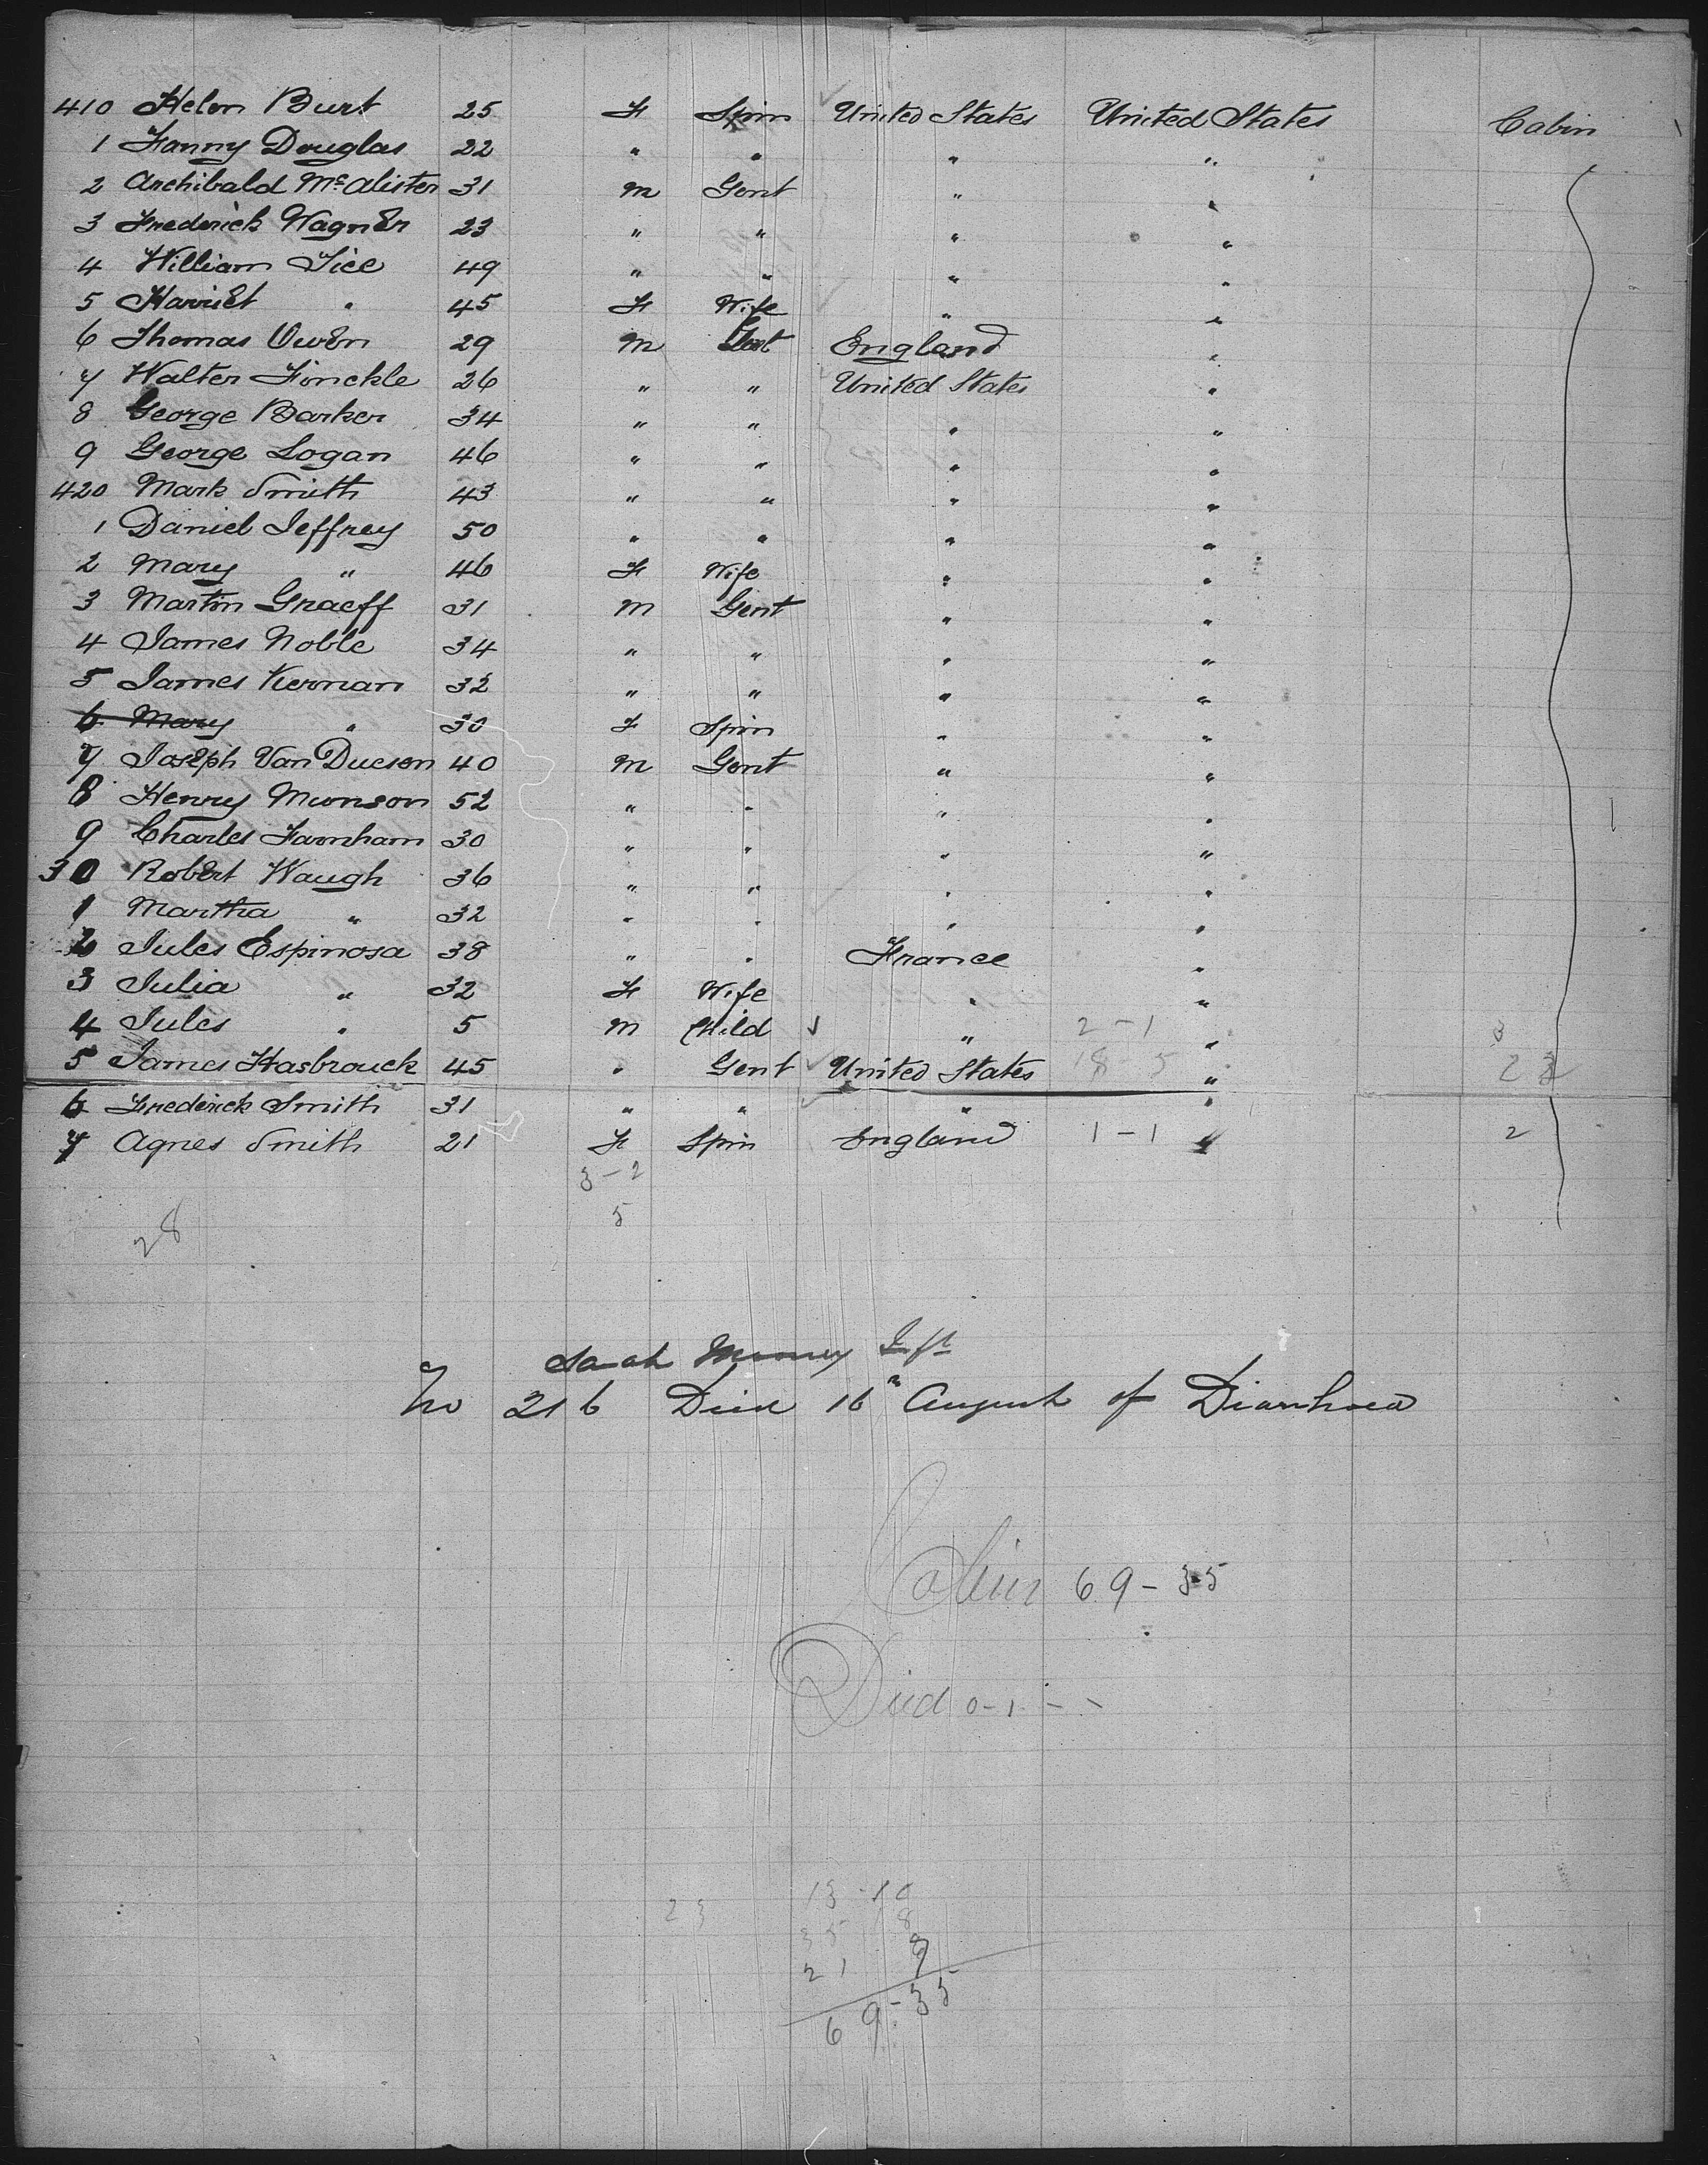 410 Helen Burt 25 F Spin United States United States Cabin
1 Fanny Douglas 22 " " " "
2 Archibald McAlister 31 M Gent " "
3 Frederick Wagner 23 " " " "
4 William Sice 49 " " " "
5 Harriet " 45 F Wife " "
6 Thomas Owen 29 M Gent England "
7 Walter Finckle 26 " " United States "
8 George Barker 34 " " " "
9 George Logan 46 " " " "
420 Mark Smith 43 " " " "
1 Daniel Jeffrey 50 " " " "
2 Mary " 46 F Wife " "
3 Martin Graeff 31 M Gent " "
4 James Noble 34 " " " "
5 James Kernan 32 " " " "
6 Mary " 30 F Spin " "
7 Joseph Van Ducson 40 M Gent " "
8 Henry Munson 52 " " " "
9 Charles Farnham 30 " " " "
30 Robert Waugh 36 " " " "
1 Martha " 32 " " " "
2 Jules Espinosa 38 " " France "
3 Julia " 32 F Wife " "
4 Jules " 5 M Child " 2-1 " 3
5 James Hasbrouck 45 " Gent United States 18 5 " 23
6 Frederick Smith 31 " " " "
7 Agnes Smith 21 F Spin England 1-1 " 2
3-2
5
28
Sarah Inft
No 216 Died 16" August of Diarrhoea
Cabin 69-35
Died 0-1--
23 13 10
35 8
21
69-35